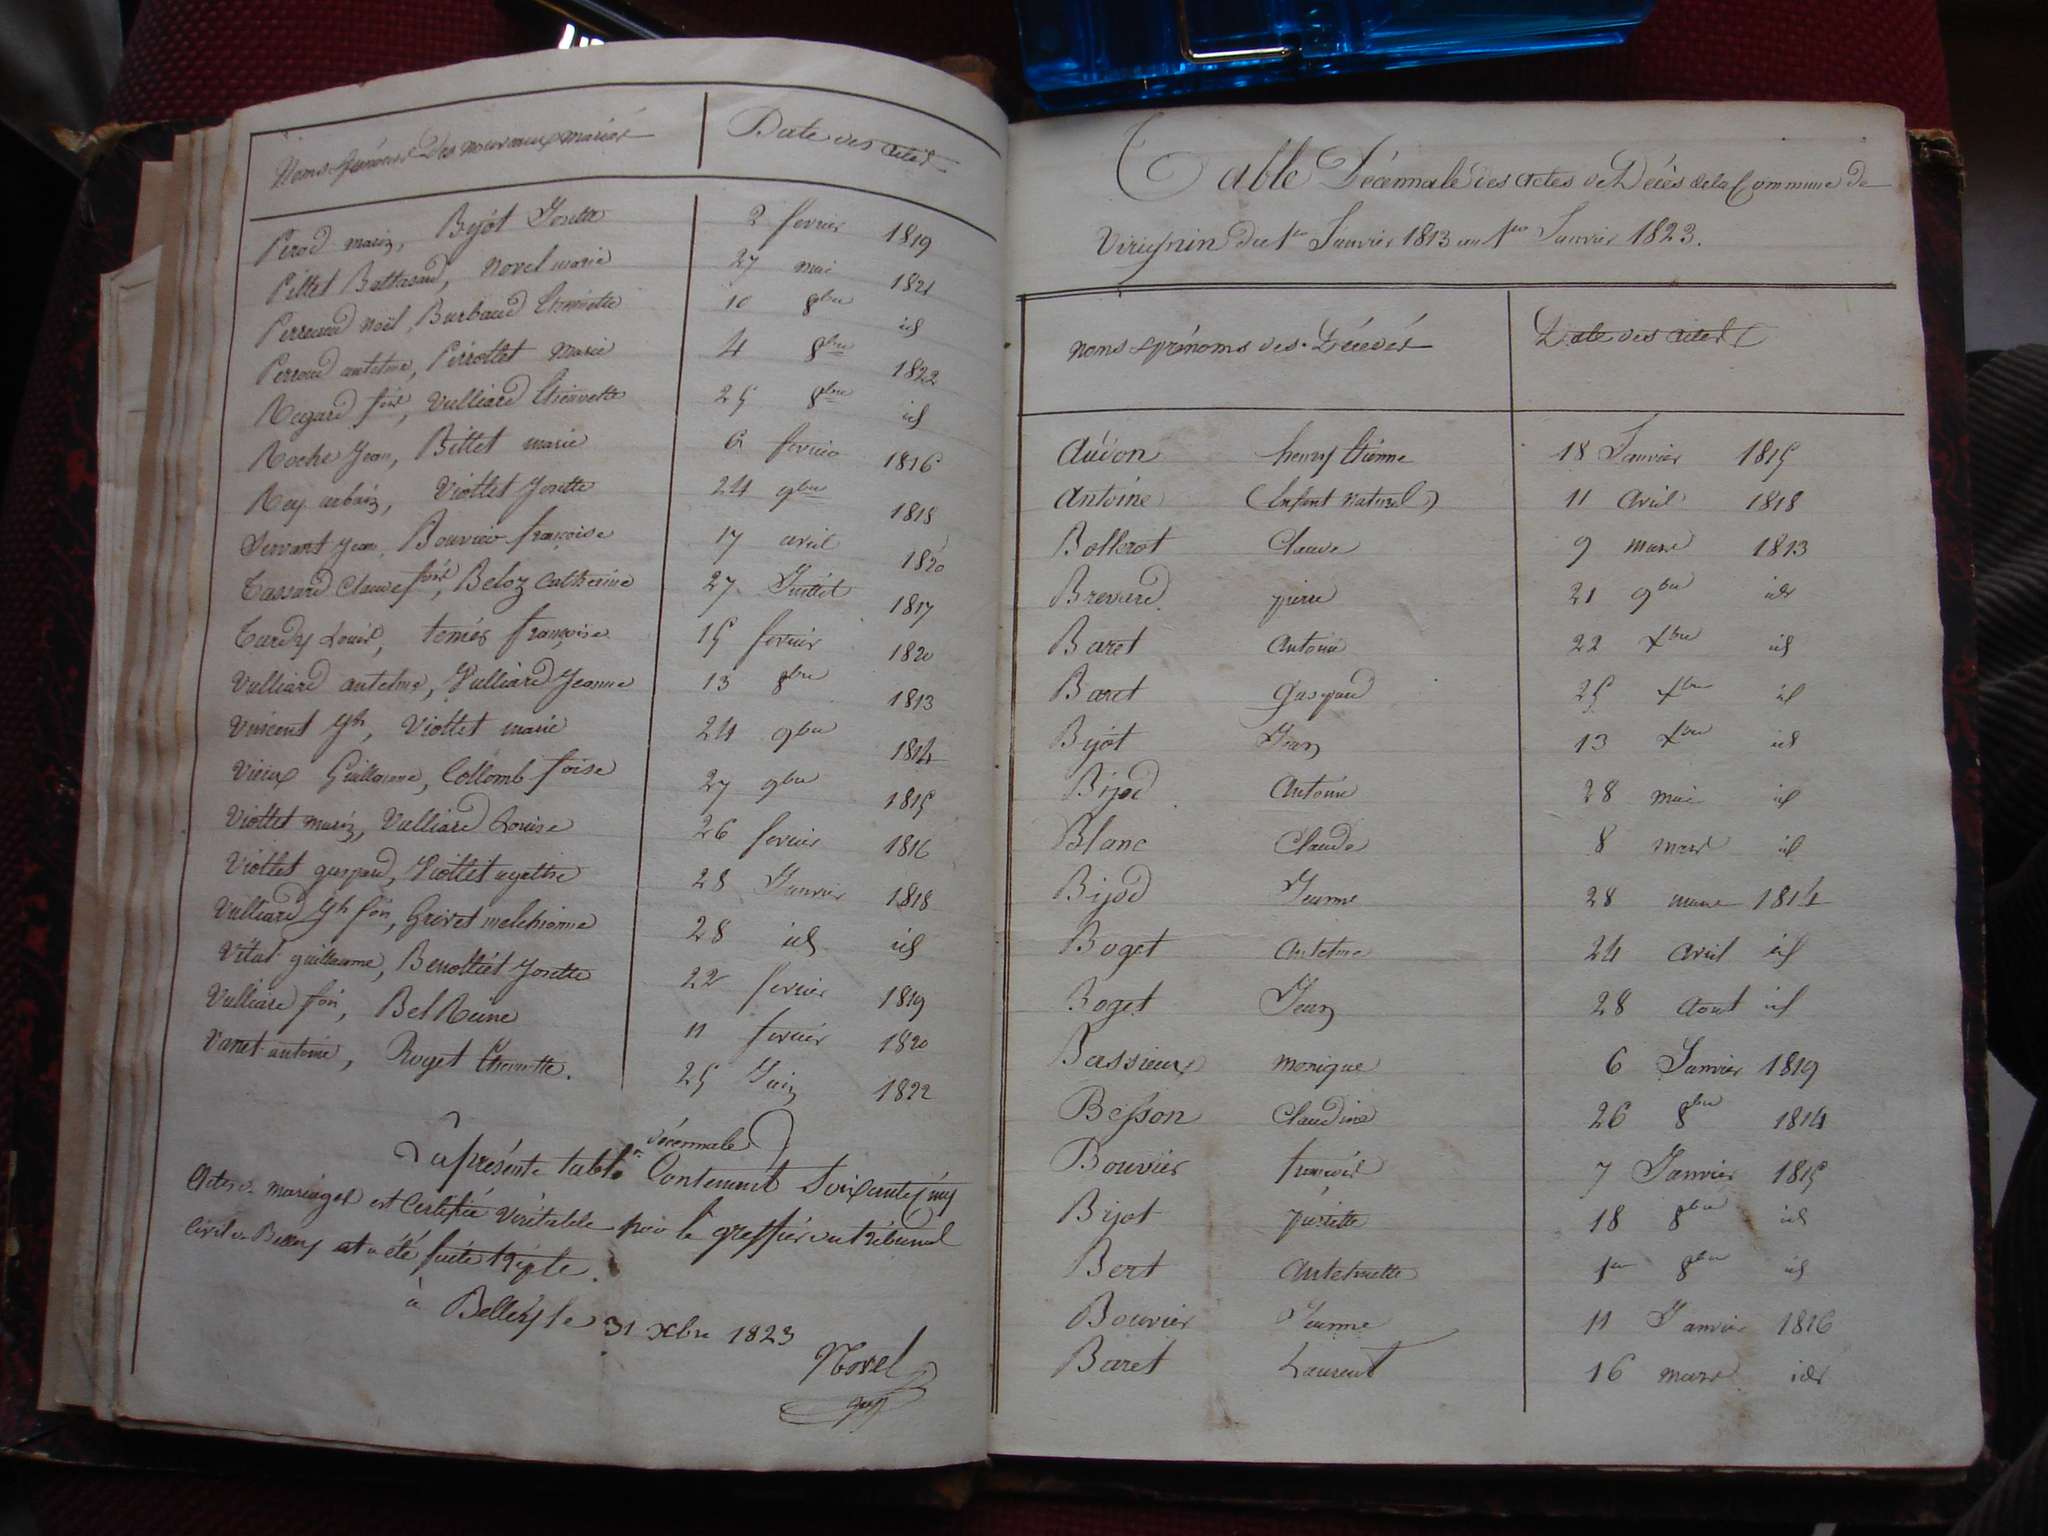 Noms & prénoms des nouveaux mariés Date des actes
Perod marin, Bijot Josette 2 fevrier 1819
Pillet Baltazard, Novel marie 27 mai 1821
Perreaud Noël, Burbaud Etiennette 10 8bre id
Perroud antelme, Perrottet Marie 4 8bre 1822
Regard fois, Vulliard Etiennette 25 8bre id
Roche Jean, Billet marie 6 fevrier 1816
Rey urbain, Viollet Josette 24 9bre 1818
Servant Jean, Bouvier françoise 17 avril 1820
Tassard Claude fois, Beloz Catherine 27 Juillet 1817
Tardy Louis, françoise 15 fevrier 1820
Vulliard antelme, Vulliard Jeanne 13 8bre 1813
Vincent Jh, Viollet marie 24 9bre 1814
Vieux Guillaume, Collomb foise 27 9bre 1815
Viollet marin, Vulliard Louise 26 fevrier 1816
Viollet gaspard, Viollet agathe 28 Janvier 1818
Vulliard Jh fois, Grivet melchionne 28 id id
Vital guillaume, Benottiet Josette 22 fevrier 1819
Vulliard fois, Bel Reine 11 fevrier 1820
Vanet antoine, Roget Etiennette. 25 Juin 1822
décennale
La présente table Contenant Soixante cinq
Actes de mariages est Certifiée Véritable par le greffier du tribunal
Civil de Belley et a été faite triple.
à Belley le 31 Xbre 1823
Novel
Table Décennale des actes de Décès de la Commune de
Virignin du 1er Janvier 1813 au 1er Janvier 1823.
noms & prénoms des Décédés Date des actes
Audon henry Etienne 18 Janvier 1815
Antoine (Enfant Naturel) 11 Avril 1818
Bollerot Claude 9 mars 1813
Brevard pierre 21 9bre id
Baret Antoine 22 Xbre id
Baret Gaspard 25 Xbre id
Bijot Jean 13 Xbre id
Bijod Antoine 28 mai id
Blanc Claude 8 mars id
Bijod Jeanne 28 mars 1814
Boget Antelme 24 Avril id
Boget Jean 28 Aout id
Bassieux monique 6 Janvier 1819
Besson Claudine 26 8bre 1814
Bouvier francois 7 Janvier 1815
Bijot pierrette 18 8bre id
Bert Antelmette 1er 8bre id
Bouvier Jeanne 11 Janvier 1816
Baret Laurent 16 mars id